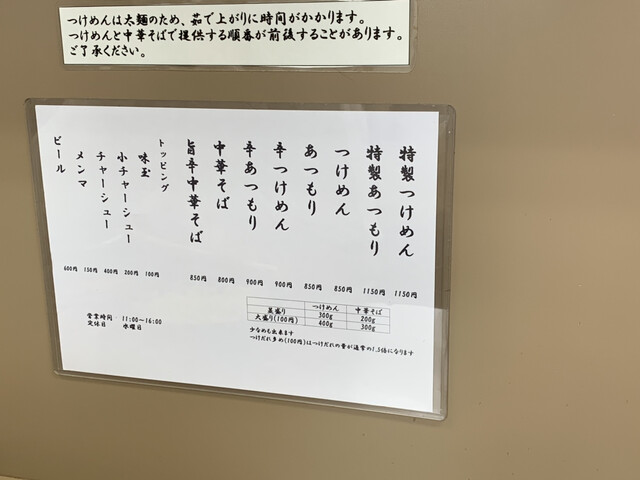 つけめんは太麺のため、茹で上がりに時間がかかります。
つけめんと中華そばで提供する順番が前後することがあります。
ご了承ください。
特製つけめん 1150円
特製あつもり 1150円
つけめん 850円
あつもり 850円
辛つけめん 900円
辛あつもり 900円
中華そば 800円
旨辛中華そば 850円
トッピング
味玉 100円
小チャーシュー 200円
チャーシュー 400円
メンマ 150円
ビール 600円
つけめん 中華そば
並盛り 300g 200g
大盛り(100円) 400g 300g
少なめも出来ます
つけだれ多め(100円)はつけだれの量が通常の1.5倍になります
営業時間 11:00～16:00
定休日 水曜日